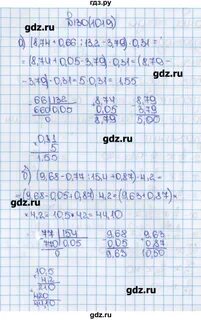 №1130(1019)
gdz.ru
а) (8,74+0,66:13,2-3,79)·0,31=
=(8,74+0,05-3,79)·0,31=(8,79-
gdz.ru
-3,79)·0,31=5·0,31=1,55
66 |132 8,74 8,79
660 0,05 0,05 3,79
gdz.ru
0 8,79 5,00
0,31
5
1,55
gdz.ru
б) (9,68-0,77:15,4+0,87)·4,2=
=(9,68-0,05+0,87)·4,2=(9,63+0,87)×
gdz.ru
×4,2=10,5·4,2=44,10
77 |154 9,68 9,63
770 0,05 0,05 0,87
0 9,63 10,50
gdz.ru
10,5
4,2
210
420
44,10
gdz.ru